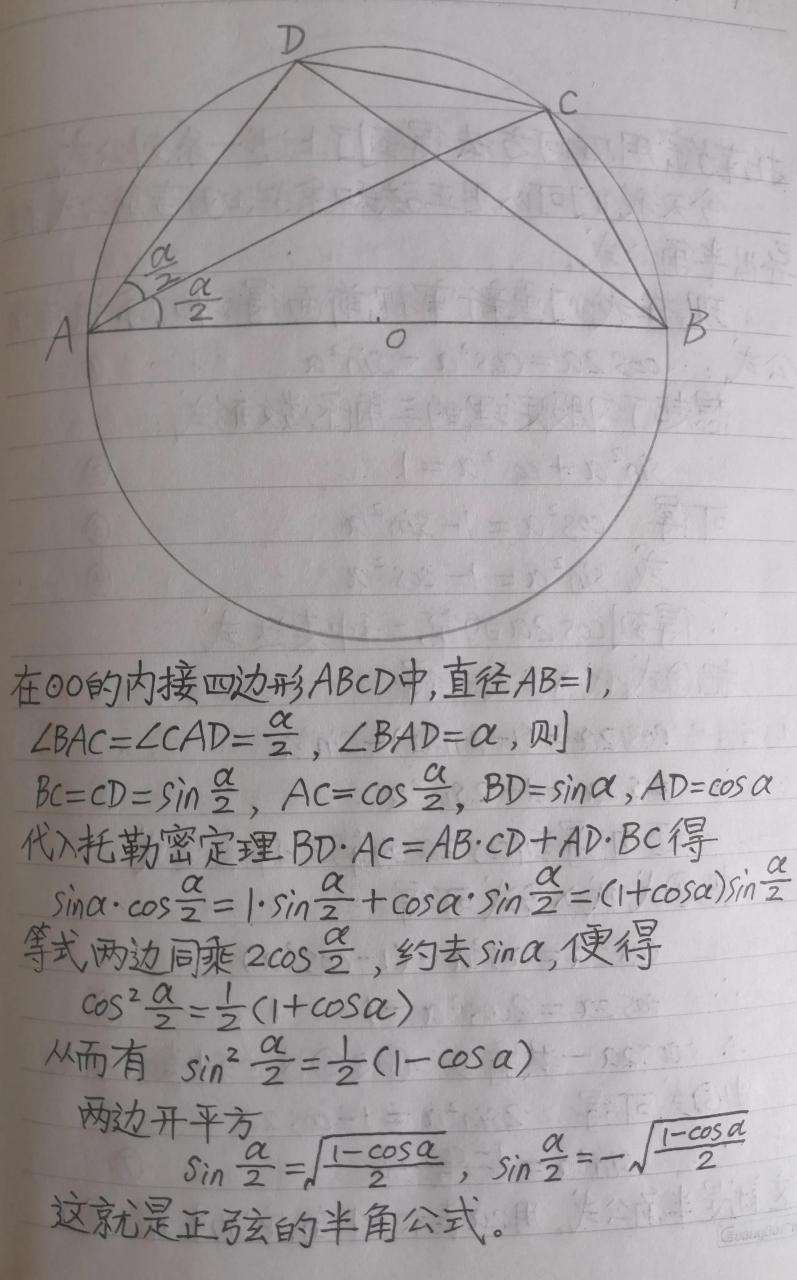 D
C
α/2
α/2
A
O
B
在⊙O的内接四边形ABCD中,直径AB=1,
∠BAC=∠CAD=α/2,∠BAD=α,则
BC=CD=sin α/2, AC=cos α/2, BD=sinα, AD=cosα
代入托勒密定理 BD·AC=AB·CD+AD·BC得
sinα·cos α/2=1·sin α/2+cosα·sin α/2=(1+cosα)sin α/2
等式两边同乘2cos α/2,约去sinα,便得
cos² α/2=1/2(1+cosα)
从而有 sin² α/2=1/2(1-cosα)
两边开平方
sin α/2=√((1-cosα)/2), sin α/2=-√((1-cosα)/2)
这就是正弦的半角公式。